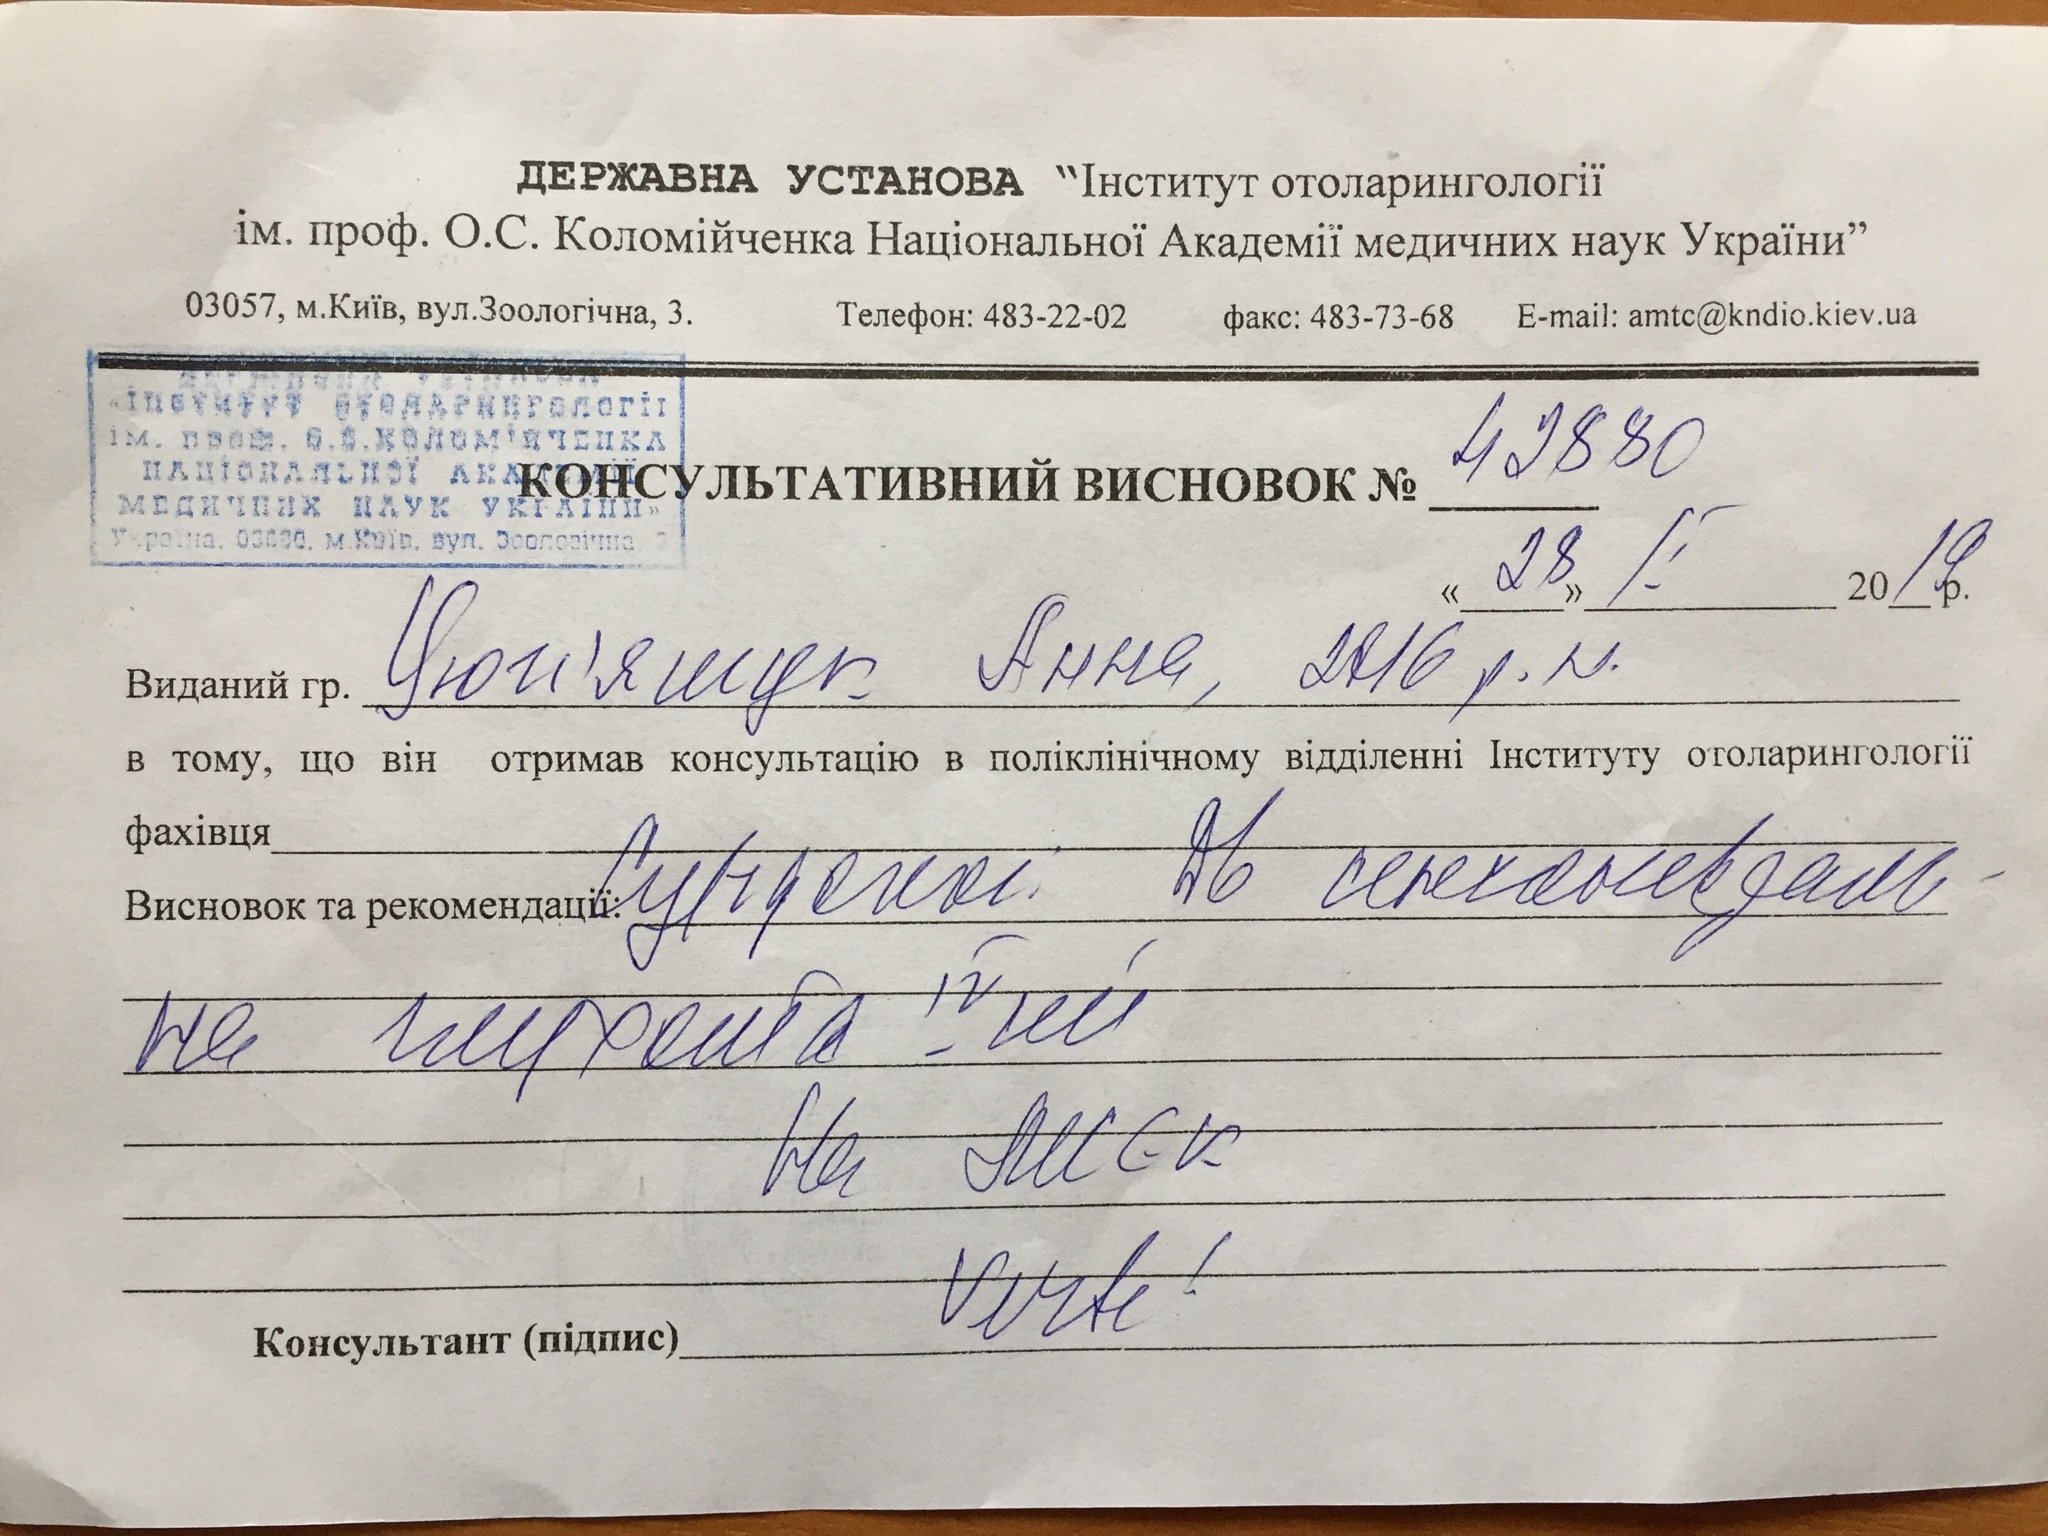 ДЕРЖАВНА УСТАНОВА “Інститут отоларингології
ім. проф. О.С. Коломійченка Національної Академії медичних наук України”
03057, м.Київ, вул.Зоологічна, 3. Телефон: 483-22-02 факс: 483-73-68 E-mail: amtc@kndio.kiev.ua
ДЕРЖАВНА УСТАНОВА
«Інститут отоларингології
ім. проф. О.С.КОЛОМІЙЧЕНКА
НАЦІОНАЛЬНОЇ АКАДЕМІЇ
МЕДИЧНИХ НАУК УКРАЇНИ»
Україна, 03680, м.Київ, вул. Зоологічна, 3
КОНСУЛЬТАТИВНИЙ ВИСНОВОК № 42880
«28» 2019 р.
Виданий гр. Анна, 2016 р.н.
в тому, що він отримав консультацію в поліклінічному відділенні Інституту отоларингології
фахівця
Висновок та рекомендації: Дв
на глухота IV
На МСЕК
Verte!
Консультант (підпис)